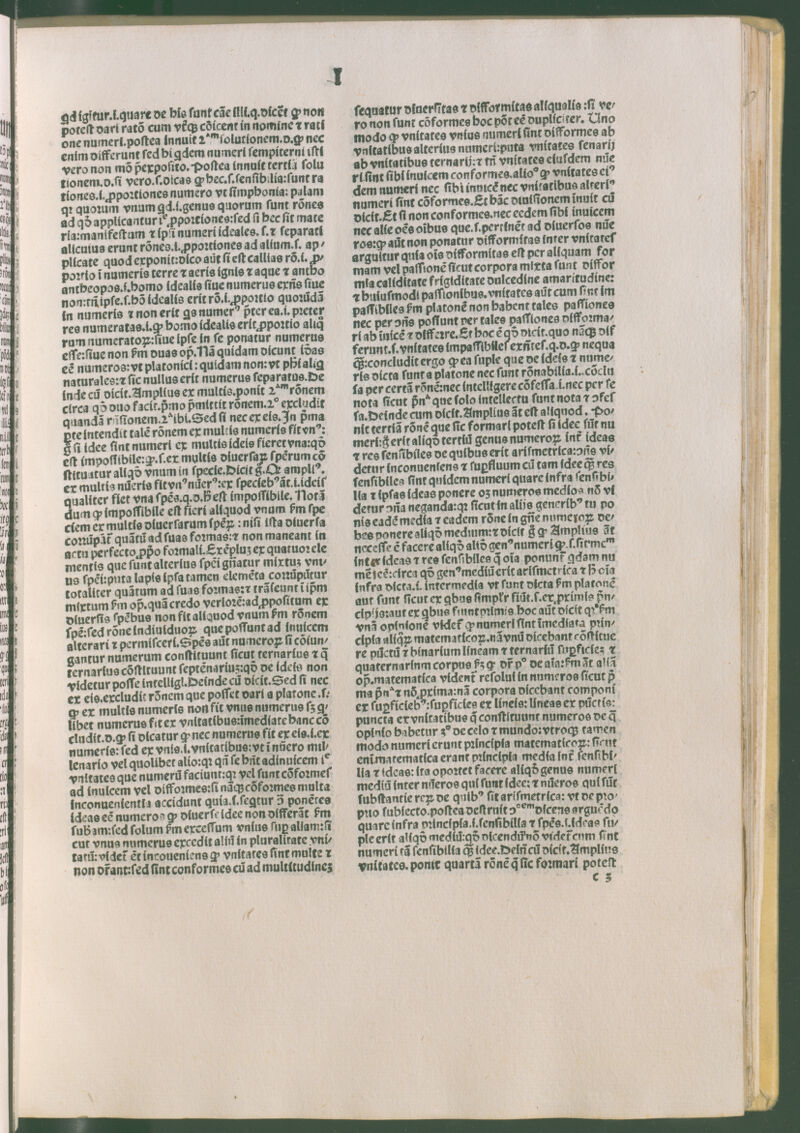 I
qd igitur.i.quare de his sunt cāe illi.q.dicēt ꝙ non
potest dari ratō cum vtrisqꝫ cōicent in nomine ⁊ rati
one numeri.postea innuit 2ᵃᵐ solutionem.d.ꝙ nec
enim differunt sed hi qdem numeri sempiterni isti
vero non mō p̄exposito. Postea innuit tertiā solu
tionem.d.si vero.s.dicas ꝙ hec.s.sensibilia:sunt ra
tiones.i.ꝓportiones numero vt simphonia: palam
qꝛ quorum vnum qd.i.genus quorum sunt rōnes
ad qō applicantur iᵉ ꝓportiones:sed si hec sit mate
ria:manifestam ⁊ ipsi numeri ideales.s.⁊ separati
alicuius erunt rōnes.i.ꝓportiones ad alium.s. ap/
plicate quod exponit:dico aūt si est callias rō.i. ꝓ/
portio i numeris terre ⁊ aeris ignis ⁊ aque ⁊ antho
antheopos.i.homo idealis siue numerus exn̄s siue
non:tn̄ ipse.s.hō idealis erit rō.i.ꝓportio quorūdā
in numeris ⁊ non erit qs numerꝰ p̄ter ea.i. preter
res numeratas.i.ꝙ homo idealis erit ꝓportio aliq̄
rum numeratoꝝ:siue ipse in se ponatur numerus
esse:siue non s̄m duas op̄. Nā quidam dicunt idēas
eē numeros:vt platonici : quidam non: vt phi aliq
naturales:⁊ sic nullus erit numerus separatus.De
inde cū dicit.Amplius ex multis.ponit 2ᵃᵐ rōnem
circa qō duo facit.p̄mo p̄mittit rōnem.2ᵒ excludit
quandā rn̄sionem.2ᵃ ibi.Sed si nec ex eis.In p̄ma
pte intendit talē rōnem ex multis numeris fit vnꝰ:
g̊ si idee sint numeri ex multis ideis fieret vna:qō
est impossibile:ꝙ.s.ex multis diuersaꝝ sp̄erum cō
stituatur aliqō vnum in specie.Dicit g̊. Qꝛ ampliꝰ.
ex multis nūeris fit vnꝰ nūerꝰ:ex speciebꝰ āt.i.ideis
qualiter fiet vna spēs.q.d.ħ est impossibile. Notā
dum ꝙ impossibile est fieri aliquod vnum s̄m spe
ciem ex multis diuersarum spēꝝ : nisi ista diuersa
corrūpāt̄ quātū ad suas formas:⁊ non maneant in
actu perfecto.ꝓpō formali.Exēpluꝫ ex quatuor ele
mentis que sunt alterius spēi gn̄atur mixtuꝫ vni/
us spēi:puta lapis ipsa tamen elemēta corrūpūtur
totaliter quātum ad suas formas:⁊ trāseunt i ip̄m
mixtum s̄m op̄.quā credo veriorē:ad ꝓpositum ex
diuersis spēbus non fit aliquod vnum s̄m rōnem
spē:sed rōne indiuiduoꝝ que possunt ad inuicem
alterari ⁊ permisceri.Spēs aūt numeroꝝ si cōiun/
gantur numerum constituunt sicut ternarius ⁊ q
ternarius cōstituunt septēnariuꝫ:qō de ideis non
videtur posse intelligi.Deinde cū dicit.Sed si nec
ex eis.excludit rōnem que posset dari a platone .s.
ꝙ ex multis numeris non fit vnus numerus sꝫ q
libet numerus fit ex vnitatibus:īmediate hanc cō
cludit.d.ꝙ si dicatur ꝙ nec numerus fit ex eis.i.ex
numeris: sed ex vnis.i.vnitatibus:vt i nūero mil/
lenario vel quolibet alio:qꝛ qn̄ se hn̄t adinuicem iᵉ
vnitates que numerū faciunt:qꝛ vel sunt cōformes
ad inuicem vel difformes:si nāqꝫ cōformes multa
inconuenientia accidunt quia.s.seqtur ↄ̄ ponētes
ideas eē numeros ꝙ diuerse idee non differāt s̄m
sub̄am:sed solum s̄m excessum vnius sup aliam:si
cut vnus numerus excedit aliū in pluralitate vni/
tatū:videt̄ ēt incoueniens ꝙ vnitates sint multe ⁊
non dr̄ant:sed sint conformes cū ad multitudineꝫ
sequatur diuersitas ⁊ difformitas aliqualis :si ve/
ro non sunt cōformes hoc pōt eē dupliciter. Uno
modo ꝙ vnitates vnius numeri sint difformes ab
vnitatibus alterius numeri:puta vnitates senarij
ab vnitatibus ternarij:⁊ tn̄ vnitates eiusdem nūe
ri sint sibi inuicem conformes.alioᵒ ꝙ vnitates eiꝰ
dem numeri nec sibi inuicē nec vnitatibus alteriꝰ
numeri sint cōformes.Et hāc diuisionem inuit cū
dicit.Et si non conformes.nec eedem sibi inuicem
nec alie oēs oībus que.s.pertinēt ad diuersos nūe
ros:ꝙ aūt non ponatur difformitas inter vnitates
arguitur quia oīs difformitas est per aliquam for
mam vel passionē sicut corpora mixta sunt differ
mia caliditate frigiditate dulcedine amaritudine:
⁊ huiusmodi passionibus.vnitates aūt cum sint im
passibiles s̄m platonē non habent tales passiones
nec per ↄn̄s possunt per tales passiones difforma/
ri ab inuicē ⁊ differre.Et hoc ē qō dicit.quo nāqꝫ dif
ferunt.s.vnitates impassibiles exn̄tes.q.d.ꝙ nequa
q̄ꝫ:concludit ergo ꝙ ea suple que de ideis ⁊ nume/
ris dicta sunt a platone nec sunt rōnabilia.i. cōclu
sa per certā rōnē:nec intelligere cōfessa.i.nec per se
nota sicut p̄nᵃ que solo intellectu sunt nota ⁊ ↄfes
sa.Deinde cum dicit.Amplius āt est aliquod . Po/
nit tertiā rōnē que sic formari potest si idee sūt nu
meri:g̊ erit aliqō tertiū genus numeroꝝ int̄ ideas
⁊ res sensibiles de quibus erit arismetrica:ↄn̄s vi/
detur inconueniens ⁊ supfluum cū tam idee q̄ꝫ res
sensibiles sint quidem numeri quare infra sensibi/
lia ⁊ ipsas ideas ponere oꝫ numeros medios nō vi
detur ↄn̄a neganda:qꝛ sicut in aliis generibꝰ tu po
nis eadē media ⁊ eadem rōne in gn̄e numeroꝝ de/
bes ponere aliqō medium:⁊ dicit g̊ ꝙ Amplius āt
necesse ē facere aliqō aliō genꝰ numeri ꝙ.s.sit me
inter ideas ⁊ res sensibiles q̄ oīa ponunt̄ qdam nu
meri eē:circa qō genꝰ mediū erit arismetrica ⁊ ħ oīa
infra dicta.i. intermedia vt sunt dicta s̄m platonē
aut sunt sicut ex qbus simplr̄ siūt.s.ex primis p̄n/
cipiis:aut ex qbus sunt primis hoc aūt dicit qꝛ s̄m
vnā opinionē videt̄ ꝙ numeri sint īmediata prin/
cipia aliq̄ꝝ matematicoꝝ.nā vnū dicebant cōstitue
re pūctū ⁊ binarium lineam ⁊ ternariū supficieꝫ ⁊
quaternarium corpus sꝫ ꝙ dr̄ pᵒ de aīa:s̄m āt aliā
op̄.matematica vident̄ resolui in numeros sicut p̄
ma p̄nᵃ ⁊ nō prima:nā corpora dicebant componi
ex supficiebꝰ:supficies ex lineis: lineas ex pūctis:
puncta ex vnitatibus q̄ constituunt numeros de q̄
opinio habetur 3ᵒ de celo ⁊ mundo: vtroqꝫ tamen
modo numeri erunt principia matematicoꝝ: sicut
eni matematica erant principia media int̄ sensibi/
lia ⁊ ideas: ita oportet facere aliqō genus numeri
mediū inter nūeros qui sunt idee: ⁊ nūeros qui sūt
substantie reꝝ de quibꝰ sit arismetrica: vt de pro/
prio subiecto.postea destruit ↄᵉᵐ dicens arguēdo
quare infra principia.i.sensibilia ⁊ spēs.i.ideas su/
ple erit aliqō mediū:qō dicendū nō videt̄ cum sint
numeri tā sensibilia q̄ꝫ idee.Dein̄ cū dicit.Amplius
vnitates. ponit quartā rōnē q̄ sic formari potest
c 3